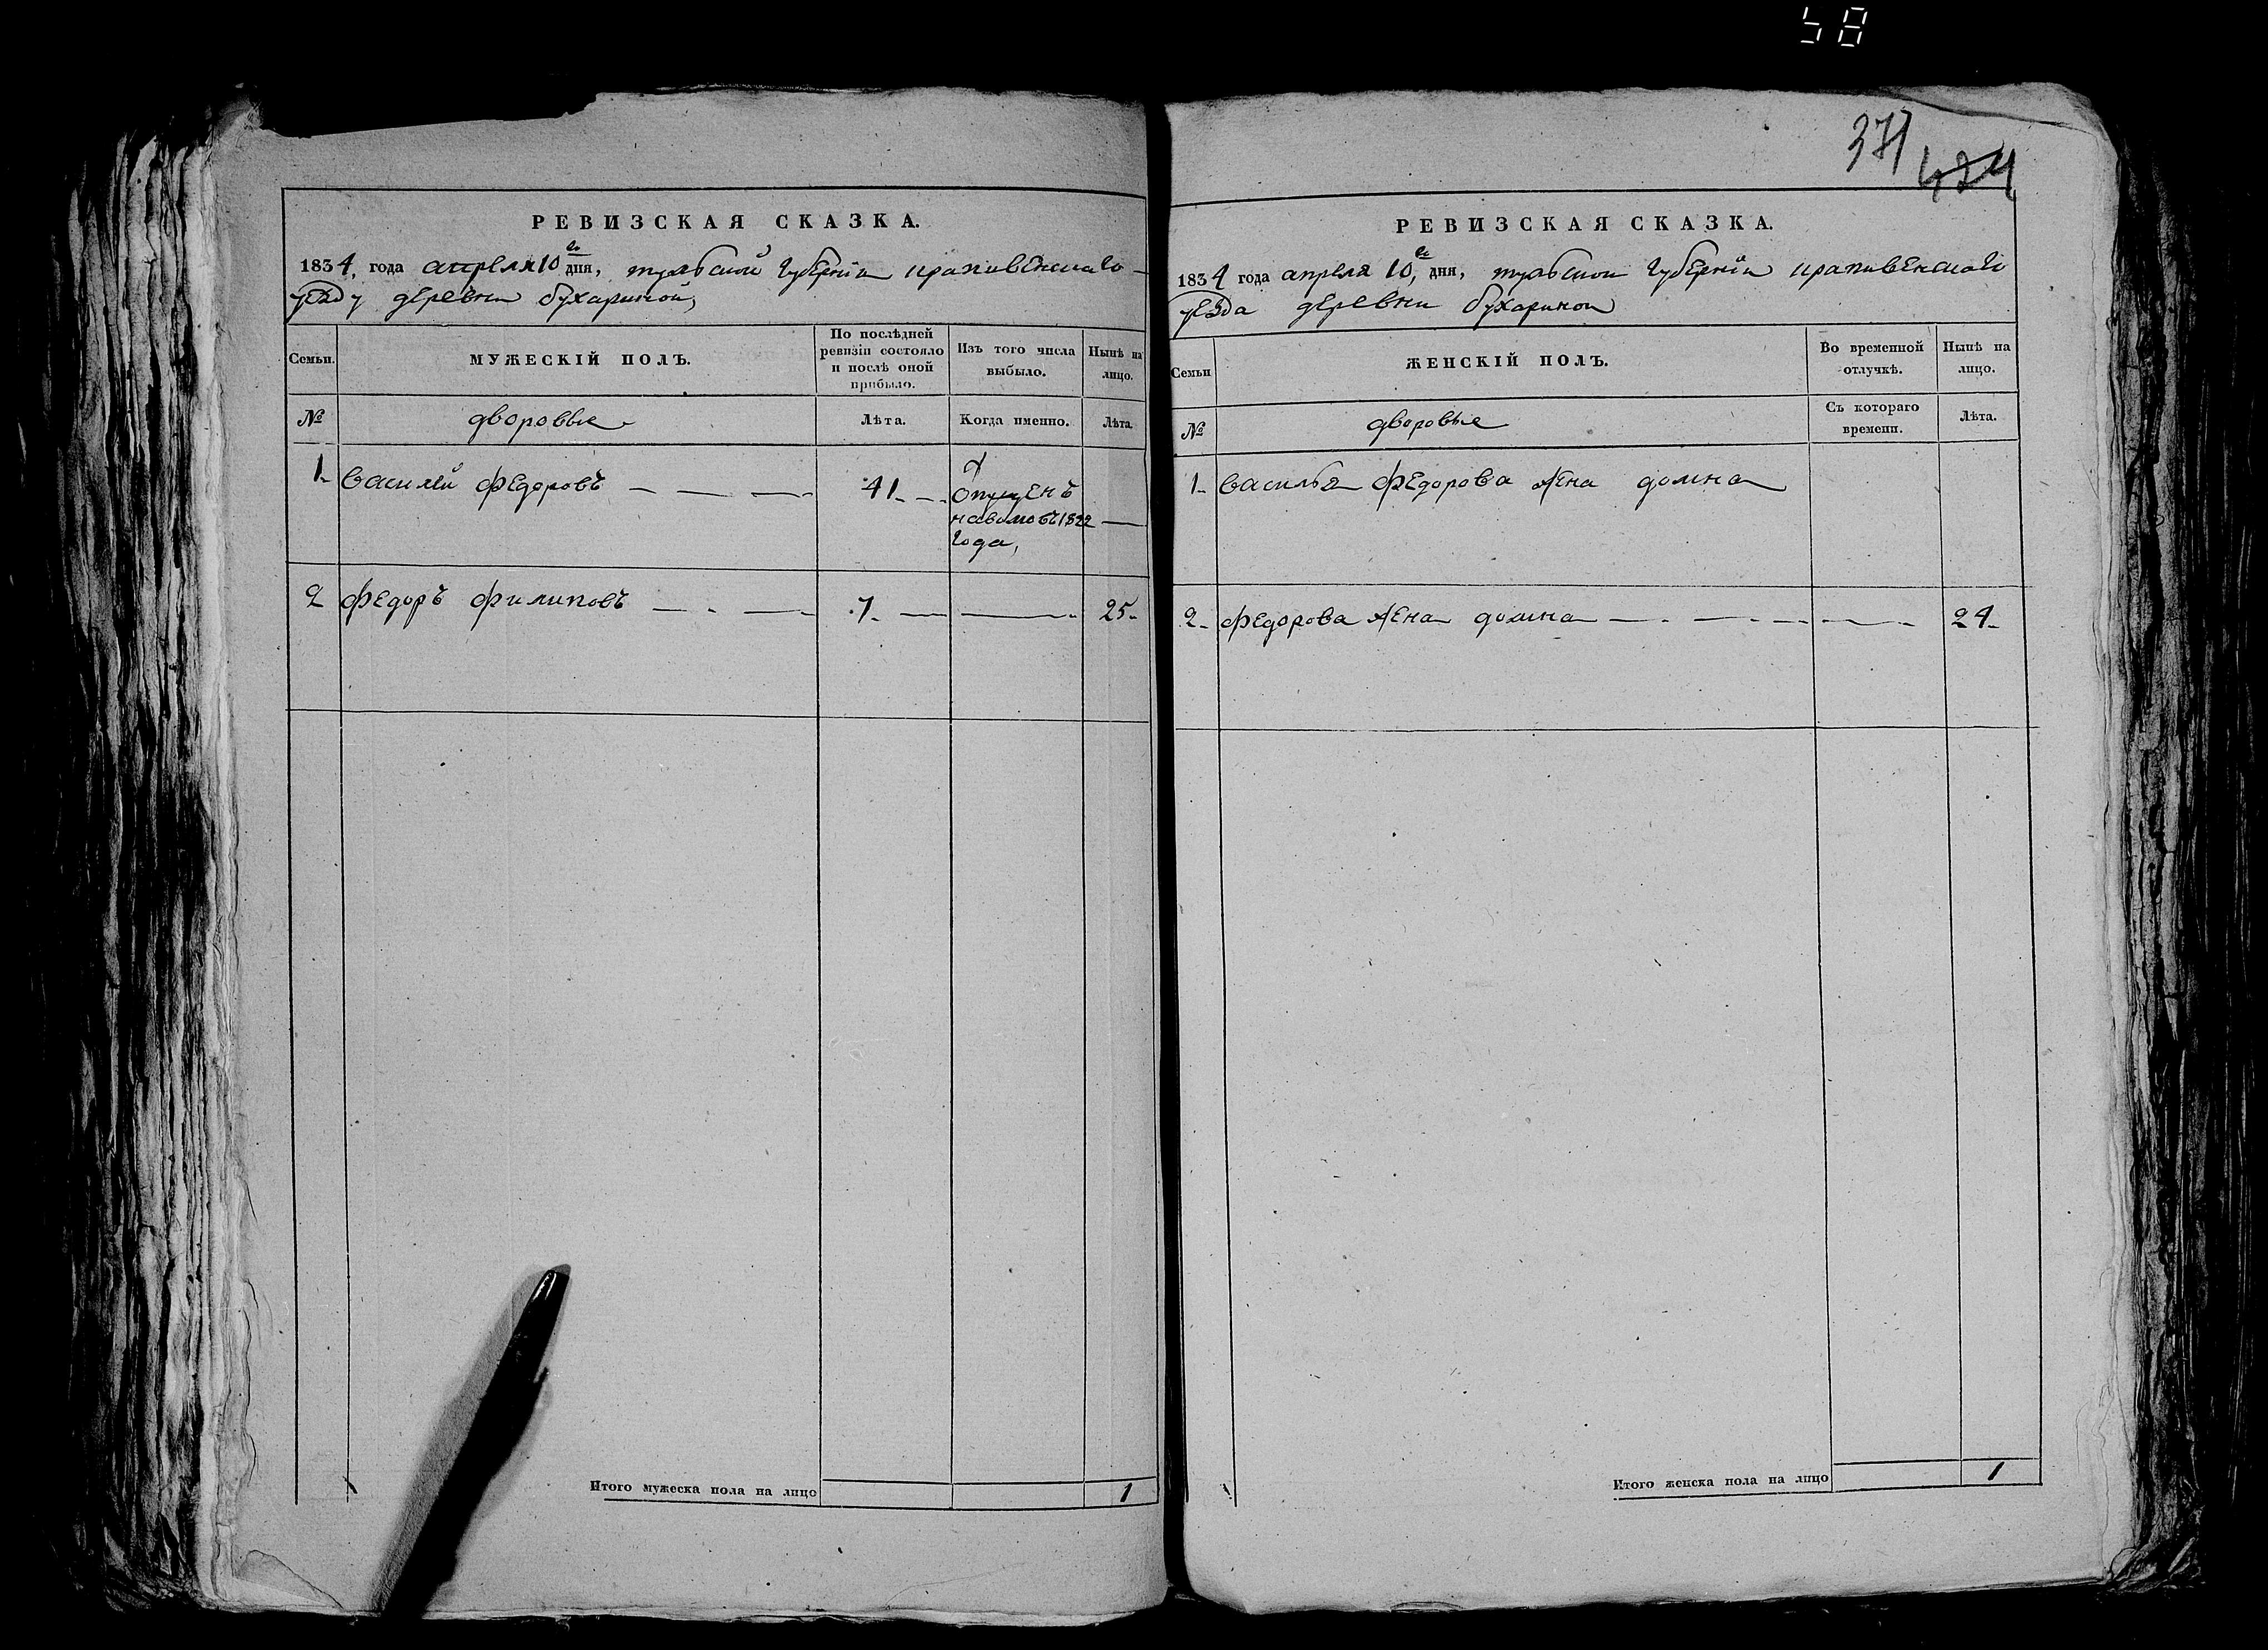 58
371
424
РЕВИЗСКАЯ СКАЗКА.
1834, года апреля 10 го дня, тульской губернiи крапивенскаго
уезду деревни бухариной,
Семьи.
МУЖЕСКIЙ ПОЛЪ.
По послѣдней
ревизiи состояло
и послѣ оной
прибыло.
Изъ того числа
выбыло.
Нынѣ на
лицо.
№
дворовые
Лѣта.
Когда именно.
Лѣта.
1 василей Федоровъ
41
Отпущенъ
наволю въ 1822
года,
2 Федоръ Филиповъ
7
25
Итого мужеска пола на лицо
1
РЕВИЗСКАЯ СКАЗКА.
1834 года апреля 10, го дня, тульской губернiи крапивенскаго
уезда деревни бухариной
Семьи
ЖЕНСКIЙ ПОЛЪ.
Во временной
отлучкѣ.
Нынѣ на
лицо.
№
дворовые
Съ котораго
времени.
Лѣта.
1 василья Федорова жена домна
2 Федорова жена домна
24
Итого женска пола на лицо
1